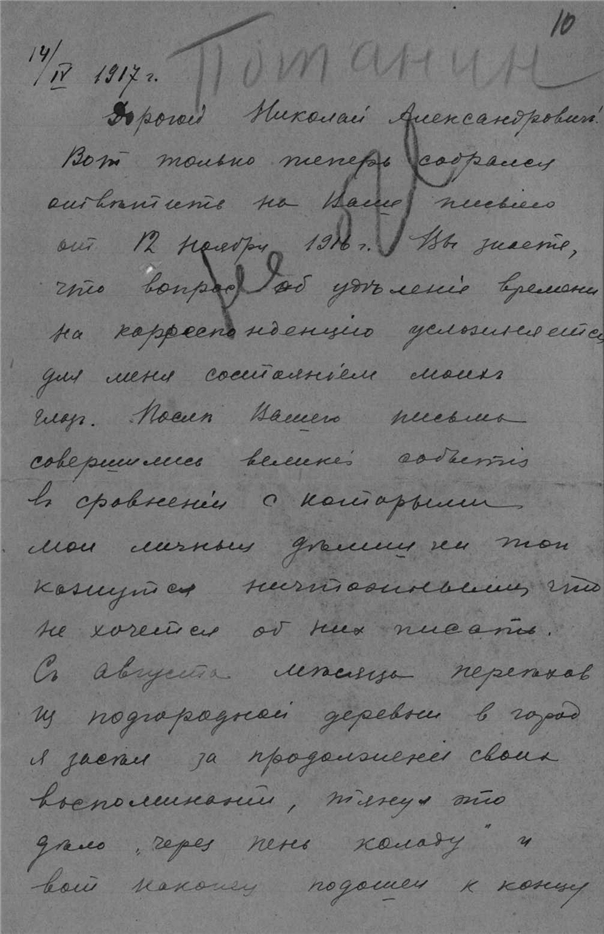 10
Потанин
14/IV 1917 г.
Дорогой Николай Александрович!
Вот только теперь собрался
ответить на Ваше письмо
от 12 ноября 1916 г. Вы знаете,
что вопрос об удѣленіи времени
на корреспонденцію усложняется
для меня состояніем моихъ
глаз. Послѣ Вашего письма
совершились великія событія
в сравненіи с которыми
мои личныя
кажутся ничтожными, что
не хочется об них писать.
Съ августа мѣсяца переѣхав
из подгородной деревни в город
я засѣл за продолженіе своих
воспоминаній, тянул это
дѣло „через пень колоду" и
вот наконец подошел к концу